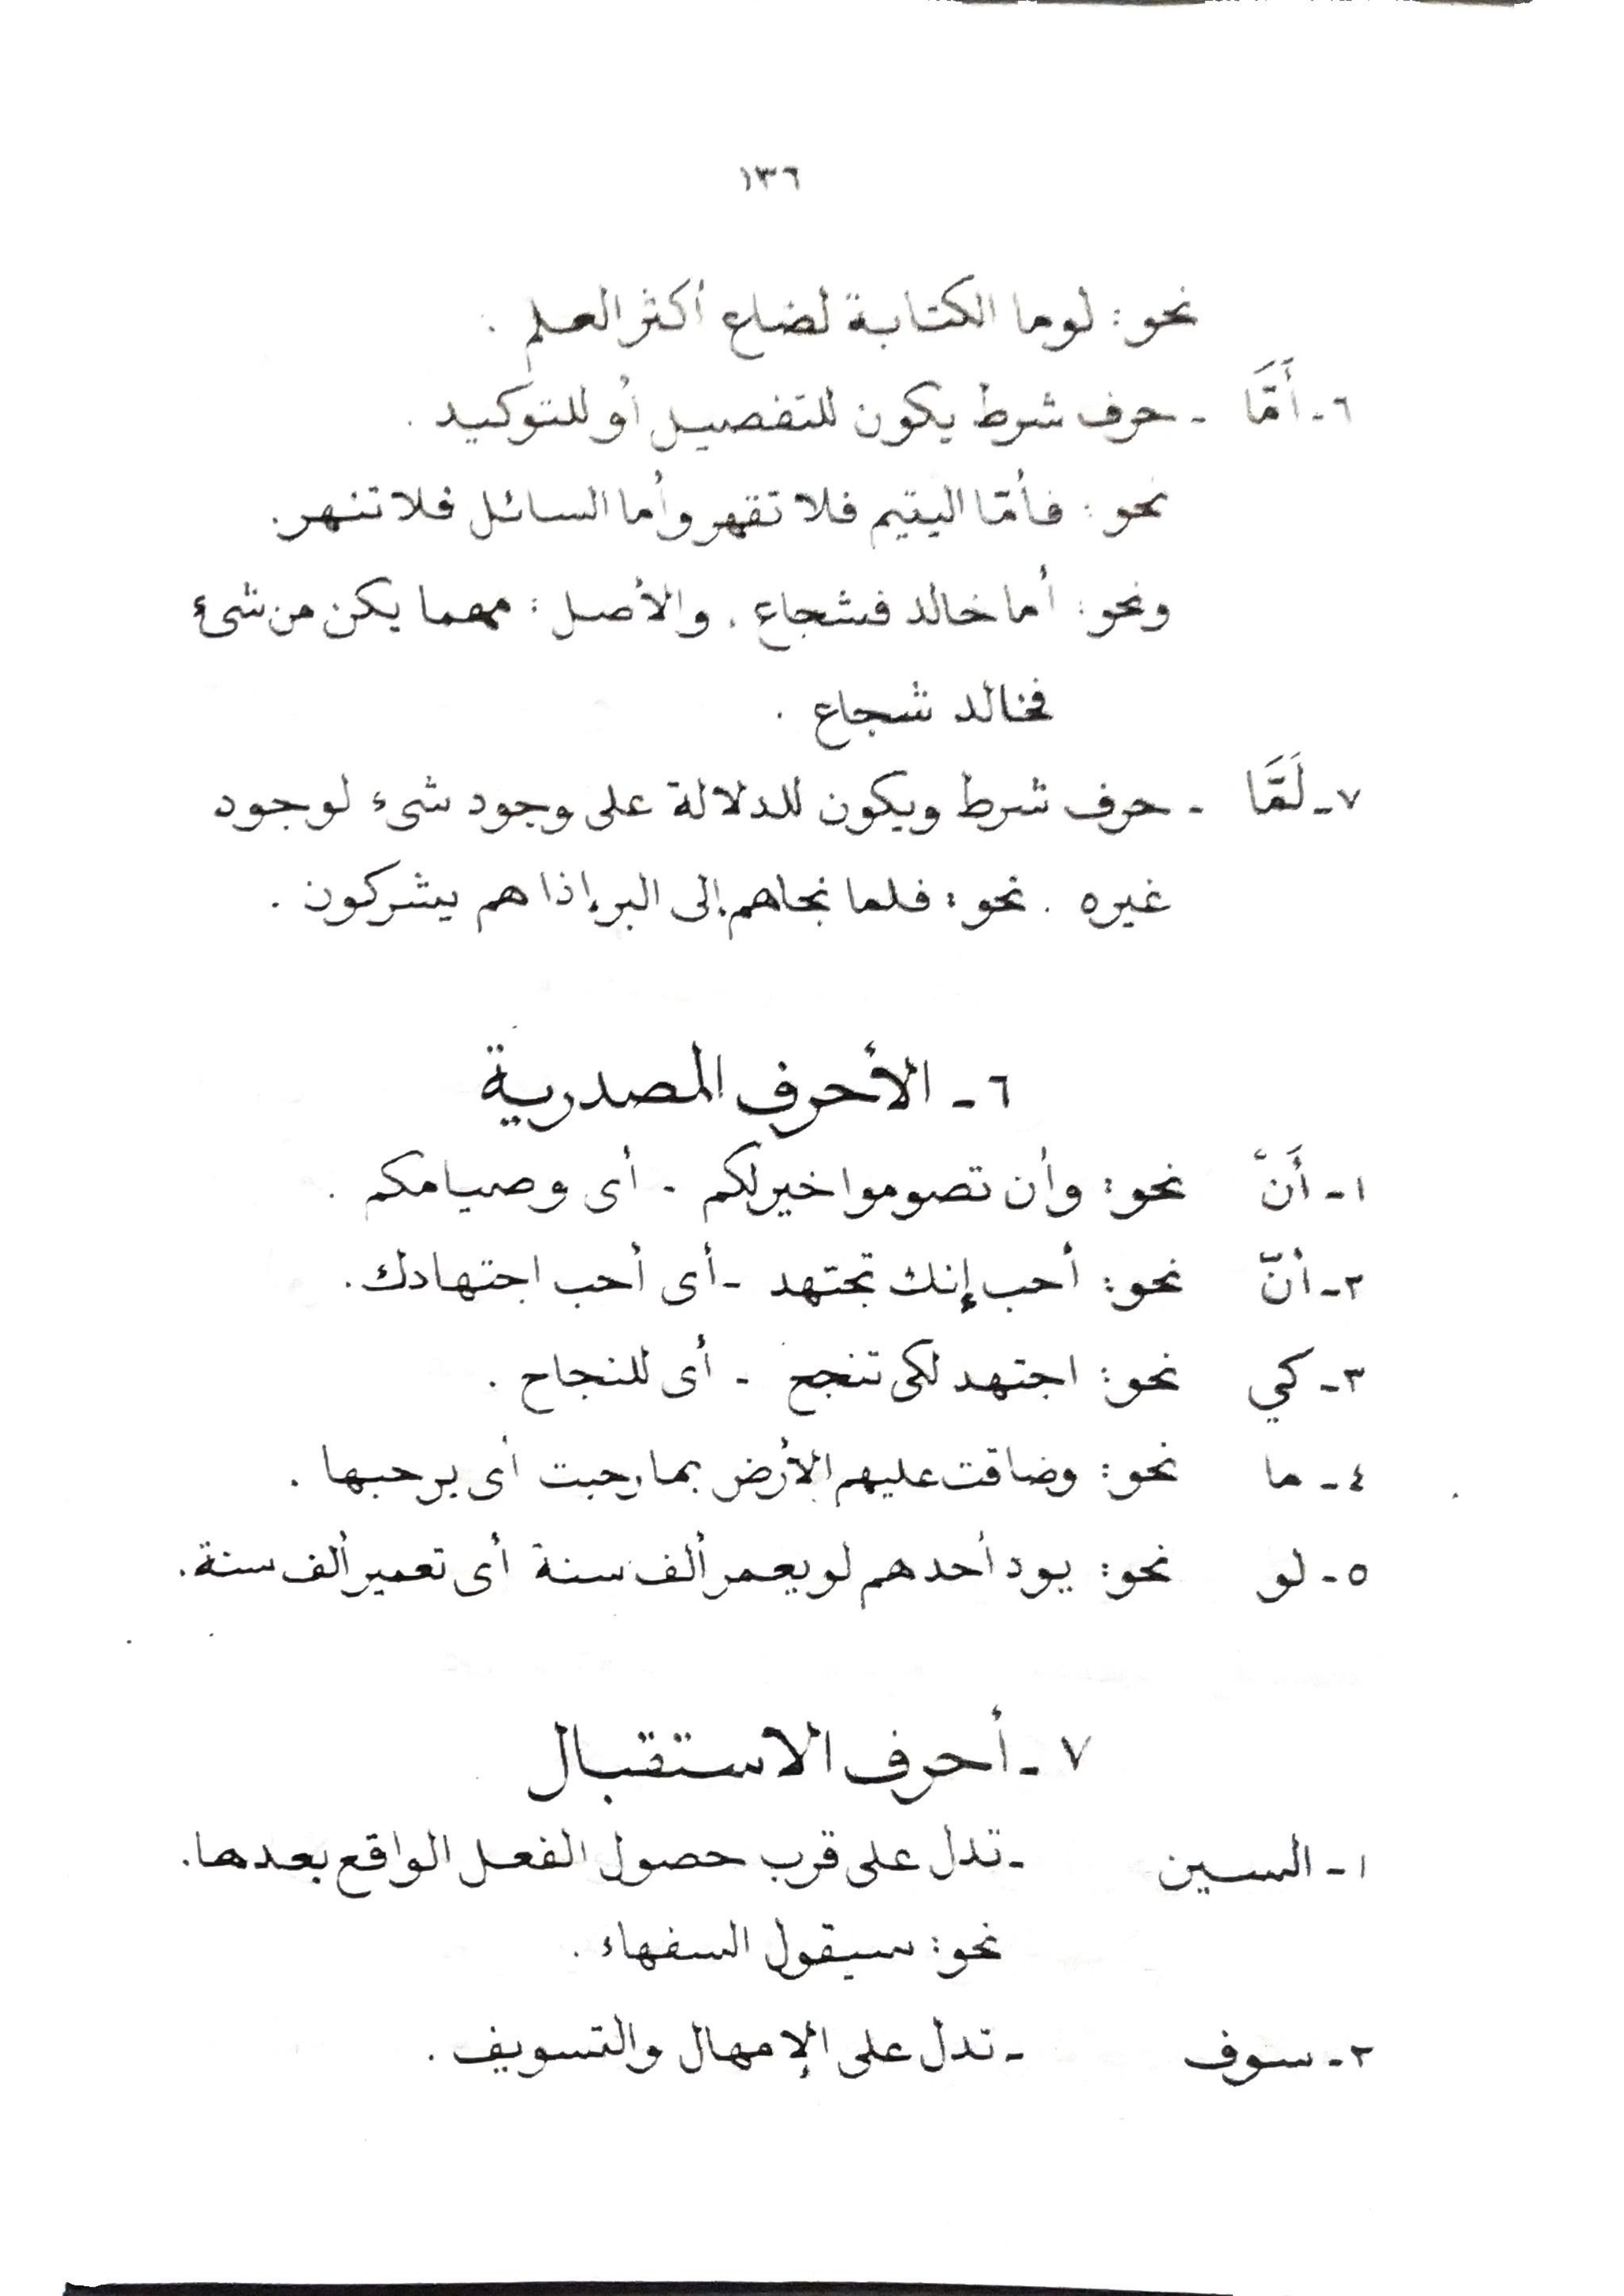 ١٣٦
نحو: لوما الكتابة لضاع أكثر العلم .
٦- أَمَّا - حرف شرط يكون للتفصيل أو للتوكيد .
نحو : فأمّا اليتيم فلا تقهر وأما السائل فلا تنهر.
ونحو: أما خالد فشجاع . والأصل : مهما يكن من شىء
فخالد شجاع .
٧- لَمَّا - حرف شرط ويكون للدلالة على وجود شىء لوجود
غيره . نحو: فلما نجاهم إلى البر إذا هم يشركون .
٦ - الأحرف المصدرية
١- أَنْ نحو: وأن تصوموا خير لكم - أى وصيامكم .
٢- أنّ نحو: أحب إنك تجتهد - أى أحب اجتهادك.
٣- كي نحو: اجتهد لكى تنجح - أى للنجاح .
٤- ما نحو: وضاقت عليهم الأرض بما رحبت أى برحبها .
٥- لو نحو: يود أحدهم لو يعمر ألف سنة أى تعمير ألف سنة.
٧ - أحرف الاستقبال
١- السين - تدل على قرب حصول الفعل الواقع بعدها.
نحو: سيقول السفهاء .
٢- سوف - تدل على الإمهال والتسويف .